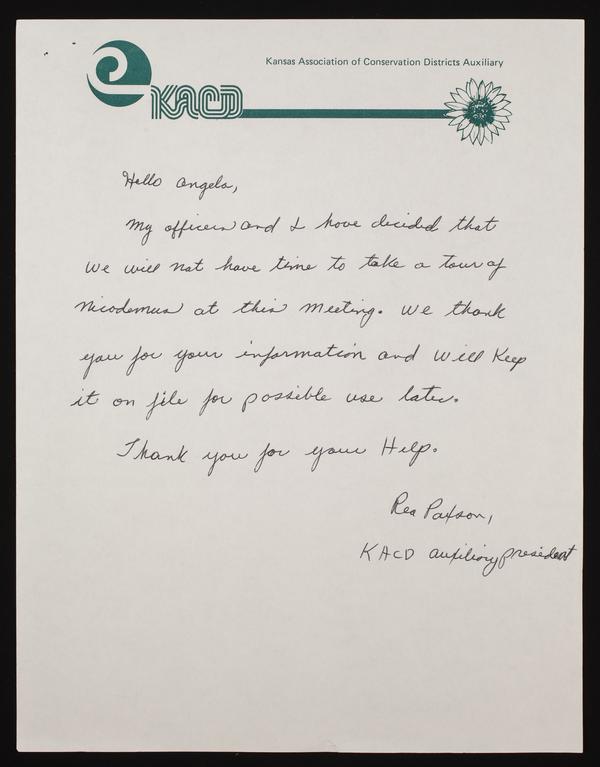 Kansas Association of Conservation Districts Auxiliary
KACD
Hello Angela,
My officers and I have decided that
we will not have time to take a tour of
Nicodemus at this meeting. We thank
you for your information and will keep
it on file for possible use later.
Thank you for your Help.
Rea Paxson,
KACD auxiliary president